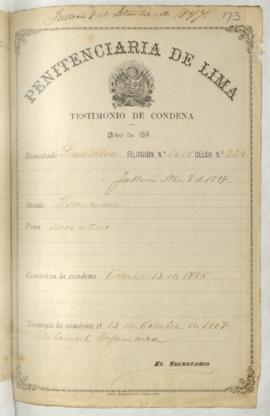 Falleció 8 de Setiembre de 1897. 173
PENITENCIARIA DE LIMA
TESTIMONIO DE CONDENA
Año de 189
Rematado Luis FILIACIÓN N.º 1618 CELDA N.º 229
Falleció Stbre 8 de 1897
Delito Homicidio
Pena doce años
Comienza la condena Octubre 13 de 1895
Termina la condena el 13 de Octubre de 1907
Tribunal Cajamarca
EL SECRETARIO